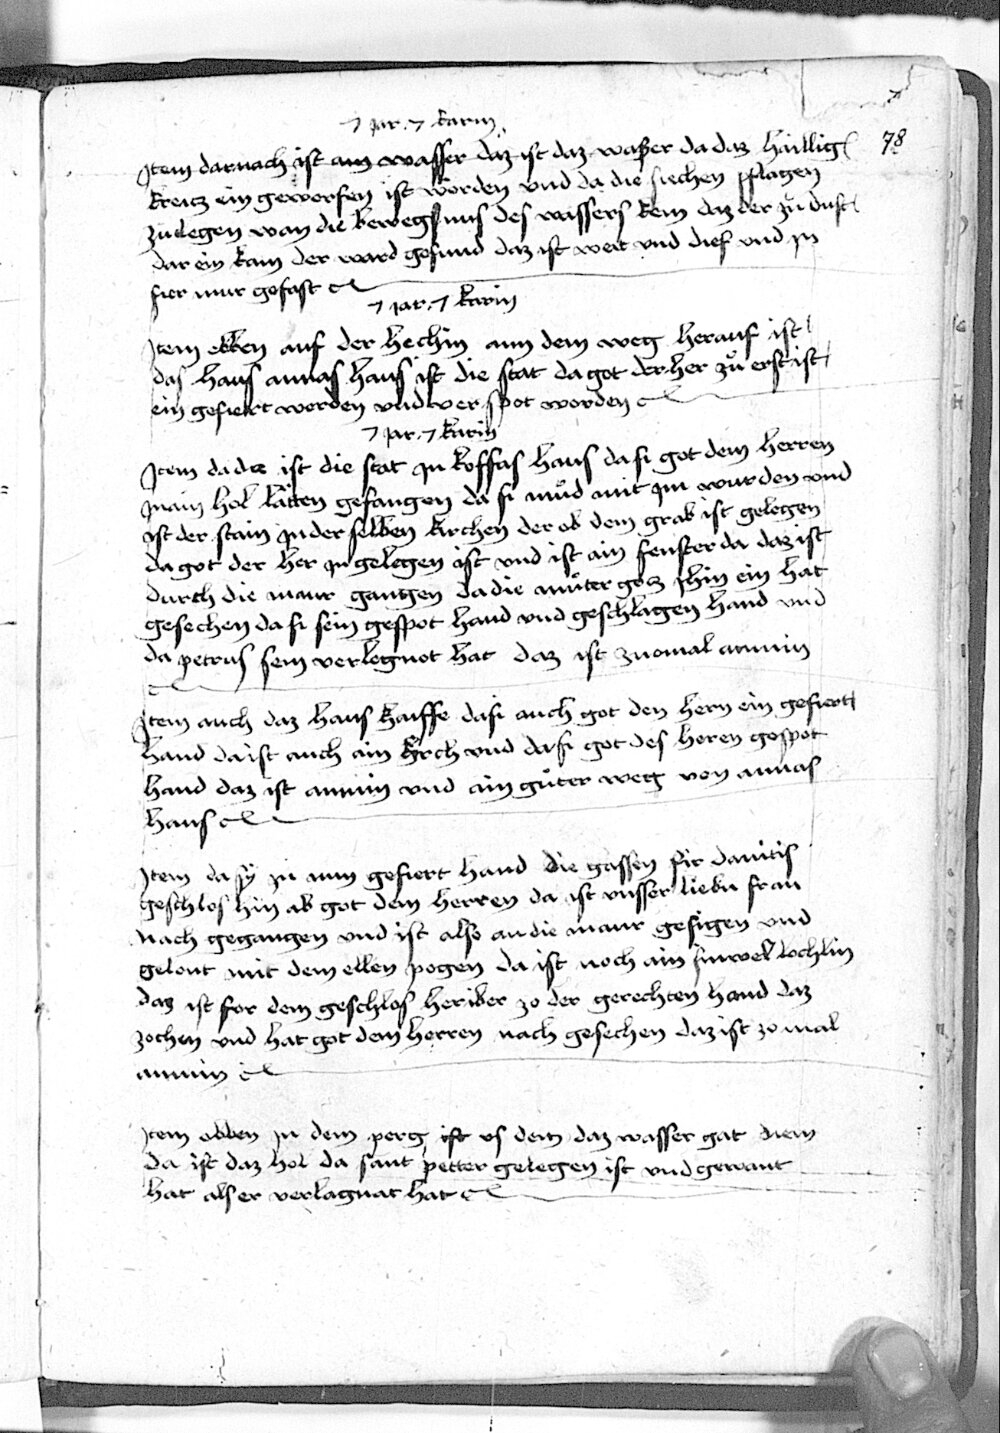 7 Jar · 7 karin
78
Item darnach ist ain wasser daz ist daz waßer da daz haillig
kreicz ein geworfen ist worden vnd da die siechen pflagen
zu legen wan die bewegsnus des wassers kem daz der zů dust
dar ein kam der ward gesund daz ist weit vnd dief vnd in
fier mur gefast
7 Jar · 7 karin
Item obben auf der hechin ann dem weg herauf ist
das haus annas haus ist die stat da got der her zů erst ist
ein gefiert worden vnd ver spot worden
7 Jar · 7 karin
Item da dez ist die stat in koffas haus da si got dem herren
in ain hol hätten gefangen da si můd mit im wurden vnd
ist der stain in der selben kirchen der ob dem grab ist gelegen
da got der her in gelegen ist vnd ist ain fenster da daz ist
durch die maur gangen da die můter gocz ihin ein hat
gesechen da si sein gespot hand vnd geschlagen hand vnd
da petrus sein verlegnot hat daz ist zuomal annim
Item auch daz haus kaiffe da si auch got den hern ein gefiert
hand da ist auch ain kirch vnd da si got des heren gespot
hand daz ist annim vnd ain gůter weg von annas
haus
Item da sÿ in nun gefiert hand die gassen fir dauitis
geschlos hin ab got dem herren da ist vnsser liebu frau
nach gegangen vnd ist also an die maur gesigen vnd
gelont mit dem ellen pogen da ist noch ain sinwel lochlin
daz ist for dem geschlos heriber zo der gerechten hand daz
zochen vnd hat got dem herren nach gesechen daz ist zo mal
annim
Item obben in dem perg ist vs dem daz wasser gat
da ist daz hol da sant petter gelegen ist vnd gewant
hat als er verlagnat hat